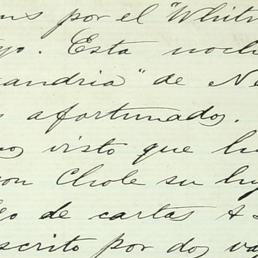 por el "Whit
Esta noch
andria" de Ne
afortunados.
visto que hu
con Chole su hij
go de cartas &
scrito por dos va